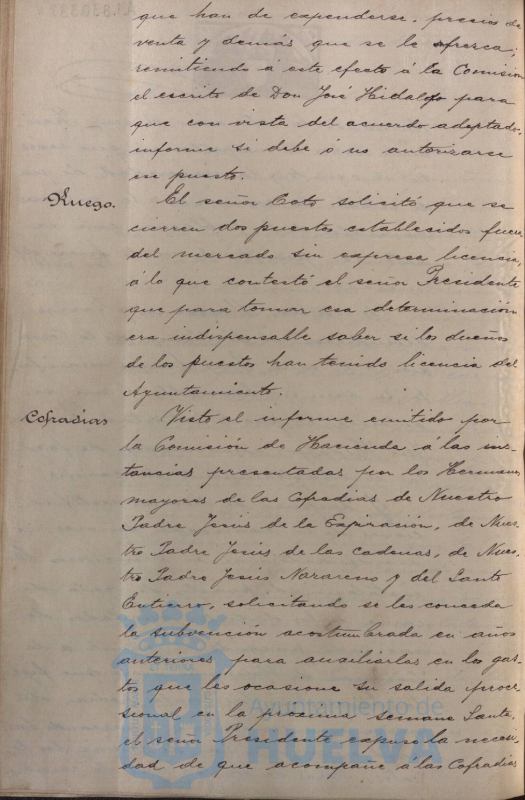 que han de expenderse, precios de
venta y demás que se le ofrezca;
remitiendo á este efecto á la Comisión
el escrito de Don José Hidalgo para
que con vista del acuerdo adoptado,
informe si debe ó no autorizarse
ese puesto.
Ruego.
El señor Coto solicitó que se
cierren dos puestos establecidos fuera
del mercado sin expresa licencia,
á lo que contestó el señor Presidente
que para tomar esa determinación
era indispensable saber si los dueños
de los puestos han tenido licencia del
Ayuntamiento.
Cofradías
Visto el informe emitido por
la Comisión de Hacienda á las ins-
tancias presentadas por los Hermanos
mayores de las Cofradias de Nuestro
Padre Jesús de la Expiración, de Nues-
tro Padre Jesús de las Cadenas, de Nues-
tro Padre Jesús Nazareno y del Santo
Entierro, solicitando se les conceda
la subvención acostumbrada en años
anteriores para auxiliarlas en los gas-
tos que les ocasione su salida proce-
sional en la próxima Semana Santa,
el señor Presidente expuso la necesi-
dad de que acompañe á las Cofradias
Ayuntamiento de
HUELVA